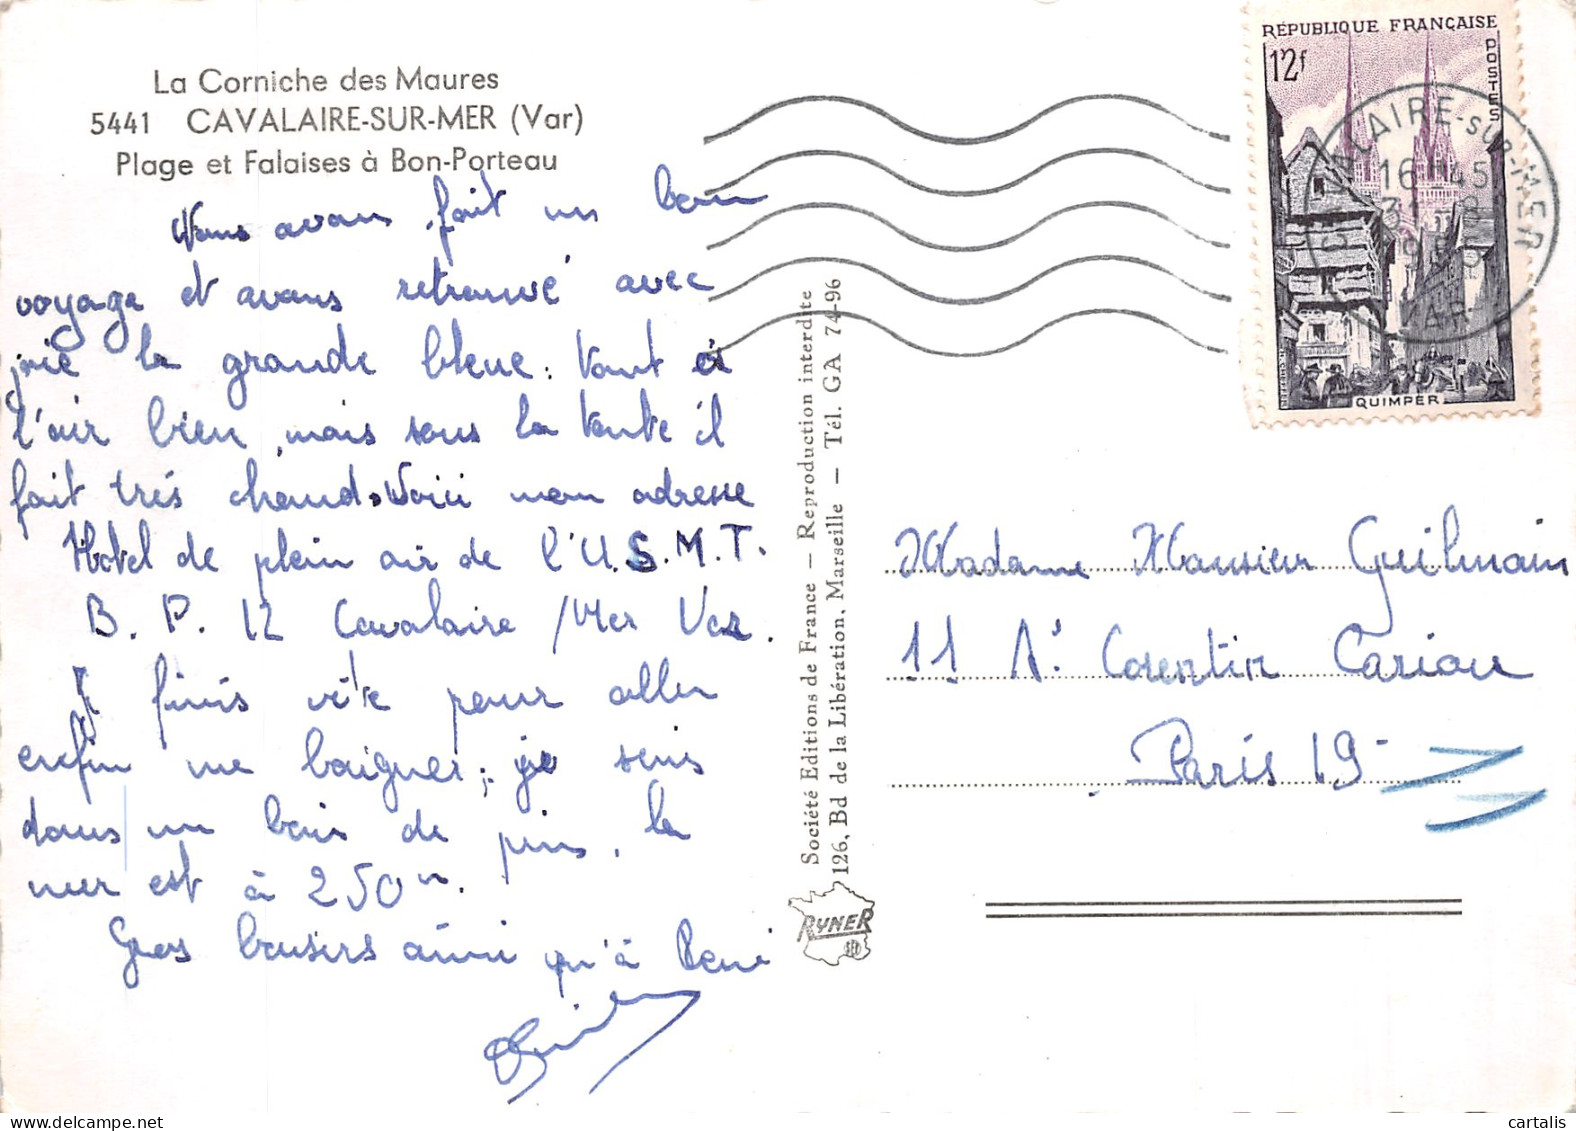 La Corniche des Maures
5441 CAVALAIRE-SUR-MER (Var)
Plage et Falaises à Bon-Porteau
Nous avons fait un bon
voyage et avons retrouvé avec
joie la grande bleue. Tout est
l'air bien, mais sous la tente il
fait très chaud. Voici mon adresse
Hotel de plein air de l'U.S.M.T.
B.P. 12 Cavalaire /Mer Var.
Je finis vite pour aller
enfin me baigner; je suis
dans un bois de pins, la
mer est à 250 m.
Gros baisers ainsi qu'à René
Société Editions de France — Reproduction interdite
126, Bd de la Libération, Marseille — Tél. GA 74-96
RYNER
RÉPUBLIQUE FRANÇAISE
12f
POSTES
QUIMPER
CAVALAIRE-SUR-MER
16 45
31 8
VAR
Madame Monsieur Guilmain
11 A. Corentin Cariou
Paris 19
cartalis